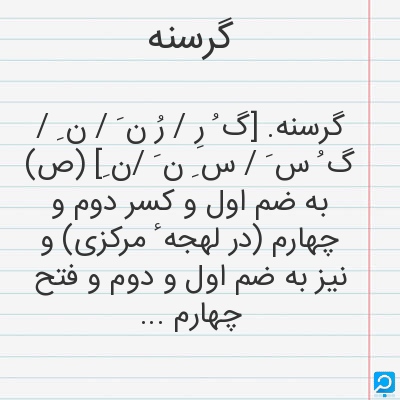 گرسنه
گرسنه. [گ ُ رِ / رُ ن َ / ن ِ /
گ ُ س َ / س ِ ن َ /ن ِ] (ص)
به ضم اول و کسر دوم و
چهارم (در لهجه ٔ مرکزی) و
نیز به ضم اول و دوم و فتح
چهارم ...